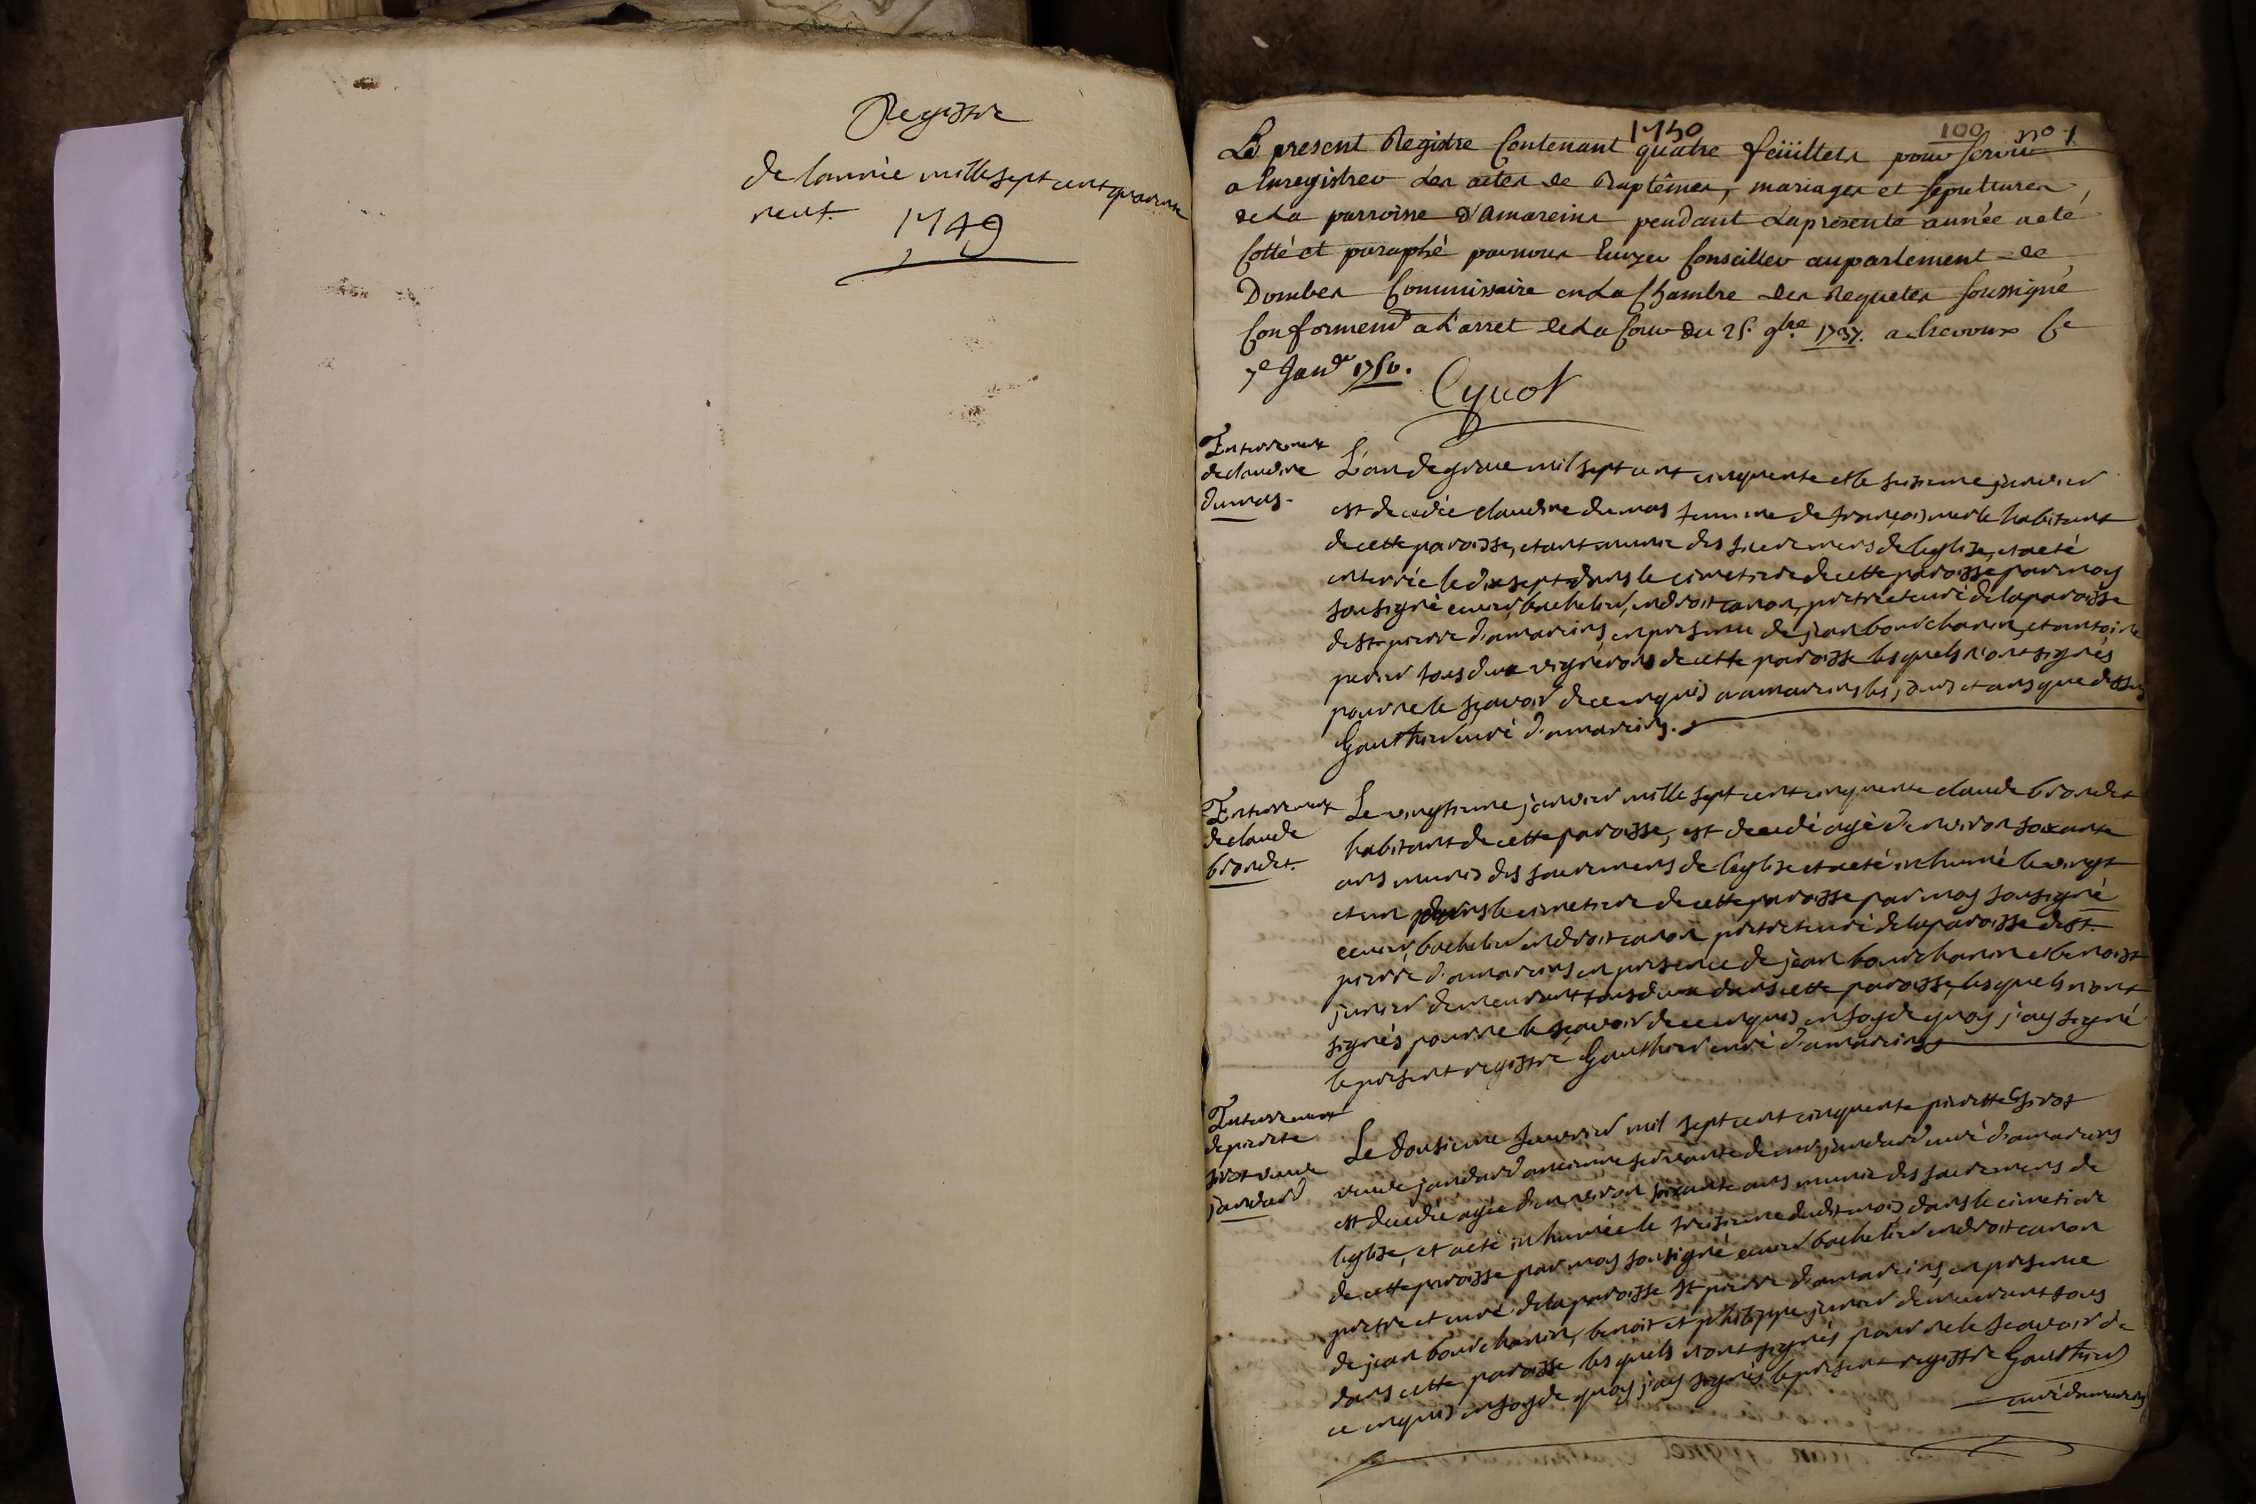 Registre
de lannée mille sept cent quarante
neuf.
1749
1750
100 no 1
Le present Registre Contenant quatre feüillets pour servir
a Enregistrer des actes de Baptêmes, mariages et sepultures
de La parroisse d'Amareins pendant La presente année a eté
Cotté et paraphé par nous Ecuyer Conseiller au parlement de
Dombes Commissaire en La Chambre des Requetes soussigné
Conformemt a L'arret de La Cour du 25. 9bre 1737. a Trevoux Ce
7e Janer 1750.
Cynot
Enterrement
de claudine
dumas.
L'an de grace mil sept cent cinquente et le seizieme janvier
est decedée claudine dumas femme de françois merle habitant
de cette paroisse, etant munie des sacremens de l'eglise, et a eté
enterrée le dix sept dans le cimetiere de cette paroisse par moy
sousigné ecuier, bachelier en droit canon, pretre et curé de la paroisse
de st pierre d'amareins en presence de jean bourchanin, et antoine
perier tous deux vignerons de cette paroisse lesquels n'ont signés
pour ne le sçavoir de ce enquis a amareins les jours et ans que dessus
Gauthier curé d'amareins.
Enterrement
de claude
brondet.
Le vingtieme janvier mille sept cent cinquente claude brondet
habitant de cette paroisse, est decedé agé d'environ soixante
ans munis des sacremens de l'eglise et a eté inhumé le vingt
et un dans le cimetiere de cette paroisse par moy sousigné
ecuier, bachelier en droit canon pretre et curé de la paroisse de st.
pierre d'amareins en presence de jean bourchanin et benoist
junier demeurant tous deux dans cette paroisse, lesquels n'ont
signés pour ne le sçavoir de ce enquis en foy de quoy j'ay signé
le present registre, Gauthier curé d'amareins
Enterrement
de pierrete
sirot veuve
jandard
Le dousieme janvier mil sept cent cinquente pierrette sirot
veuve jandard ancienne servante de jandard curé d'amareins
est decedée agée d'environ soixante ans munie des sacremens de
leglise, et a eté inhumée le treisieme dudit mois dans le cimetiere
de cette paroisse par moy sousigné ecuier bachelier en droit canon
pretre et curé de la paroisse st pierre d'amareins en presence
de jean bourchanin, benoit et philippe junier demeurant tous
dans cette paroisse lesquels n'ont signés pour ne le sçavoir de
ce enquis en foy de quoy j'ay signés le present registre Gauthier
curé damareins